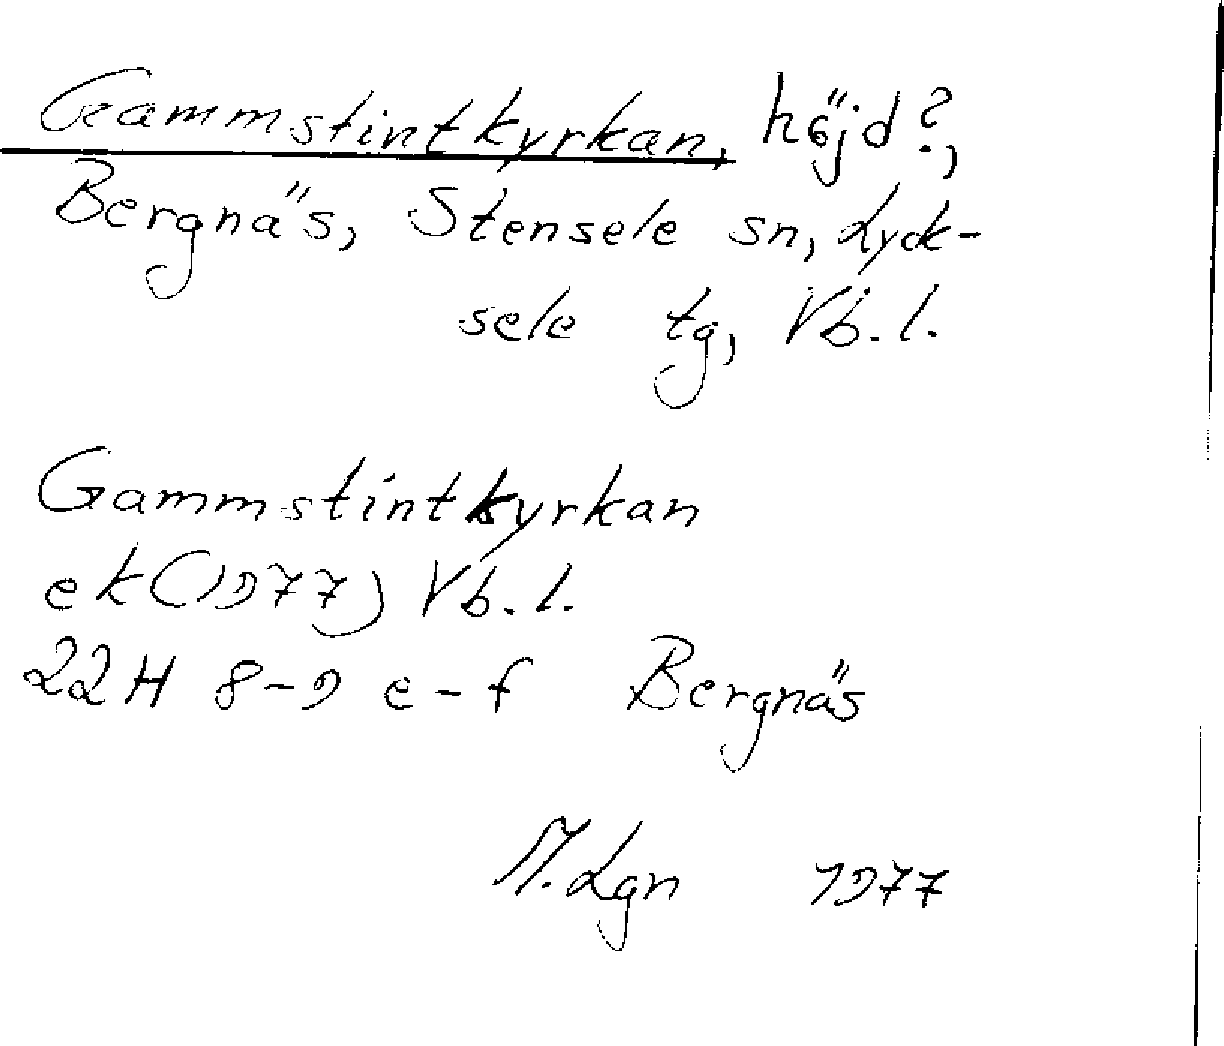 Gammstintkyrkan, höjd?,
Bergnäs, Stensele sn, Lyck-
sele tg, Vb. l.
Gammstintkyrkan
ek (1977) Vb. l.
22H 8-9 e-f Bergnäs
M. Lgn 1977